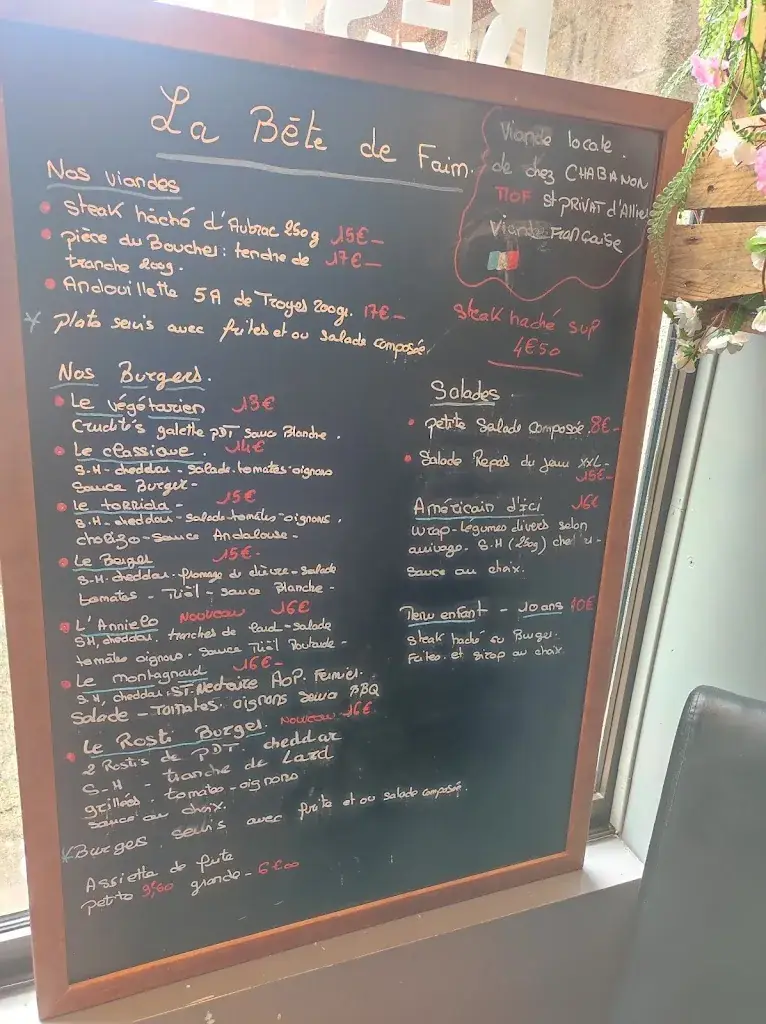 La Bête de Faim.
Viande locale.
de chez CHABANON
MOF St PRIVAT d'Allier
Viande Française
Nos viandes
Steak hâché d'Aubrac 250g 15€-
pièce du Boucher: tendre de 17€-
tranche 200g.
Andouillette 5A de Troyes 200gr. 17€-
* plats servis avec frites et ou salade composée.
Steak haché sup
4€50
Nos Burgers.
Le végétarien 13€
Crudités galette PDT sauce Blanche.
Le classique. 14€
S.H-cheddar-salade-tomates-oignons
Sauce Burger-
le torrida- 15€
S.H-cheddar-salade-tomates-oignons.
chorizo-sauce Andalouse-
Le Berger 15€-
S-H-cheddar-fromage de chèvre-salade
tomates - miel - sauce Blanche -
L'Annielo NOUVEAU 16€
SH, cheddar. tranches de lard-salade
tomates oignons. sauce miel Moutarde-
Le montagnard 16€-
S.H, cheddar. ST. Nectaire AOP. Fermier.
Salade - Tomates. oignons sauce BBQ
Le Rosti Burger. NOUVEAU 16€
2 Rostis de PDT. cheddar
S-H - tranche de Lard
grillées. tomates-oignons
sauce au choix.
*Burgers servis avec frite et ou salade composée.
Assiette de frite
petite grande- 6€00
Salades
petite Salade composée. 8€-
Salade Repas du jour XXL-
15€-
Américain d'ici 16€
Wrap-légumes divers selon
arrivage. S.H (250g)
sauce au choix.
Menu enfant - 10 ans 10€
Steak haché ou Burger.
Frites. et sirop au choix